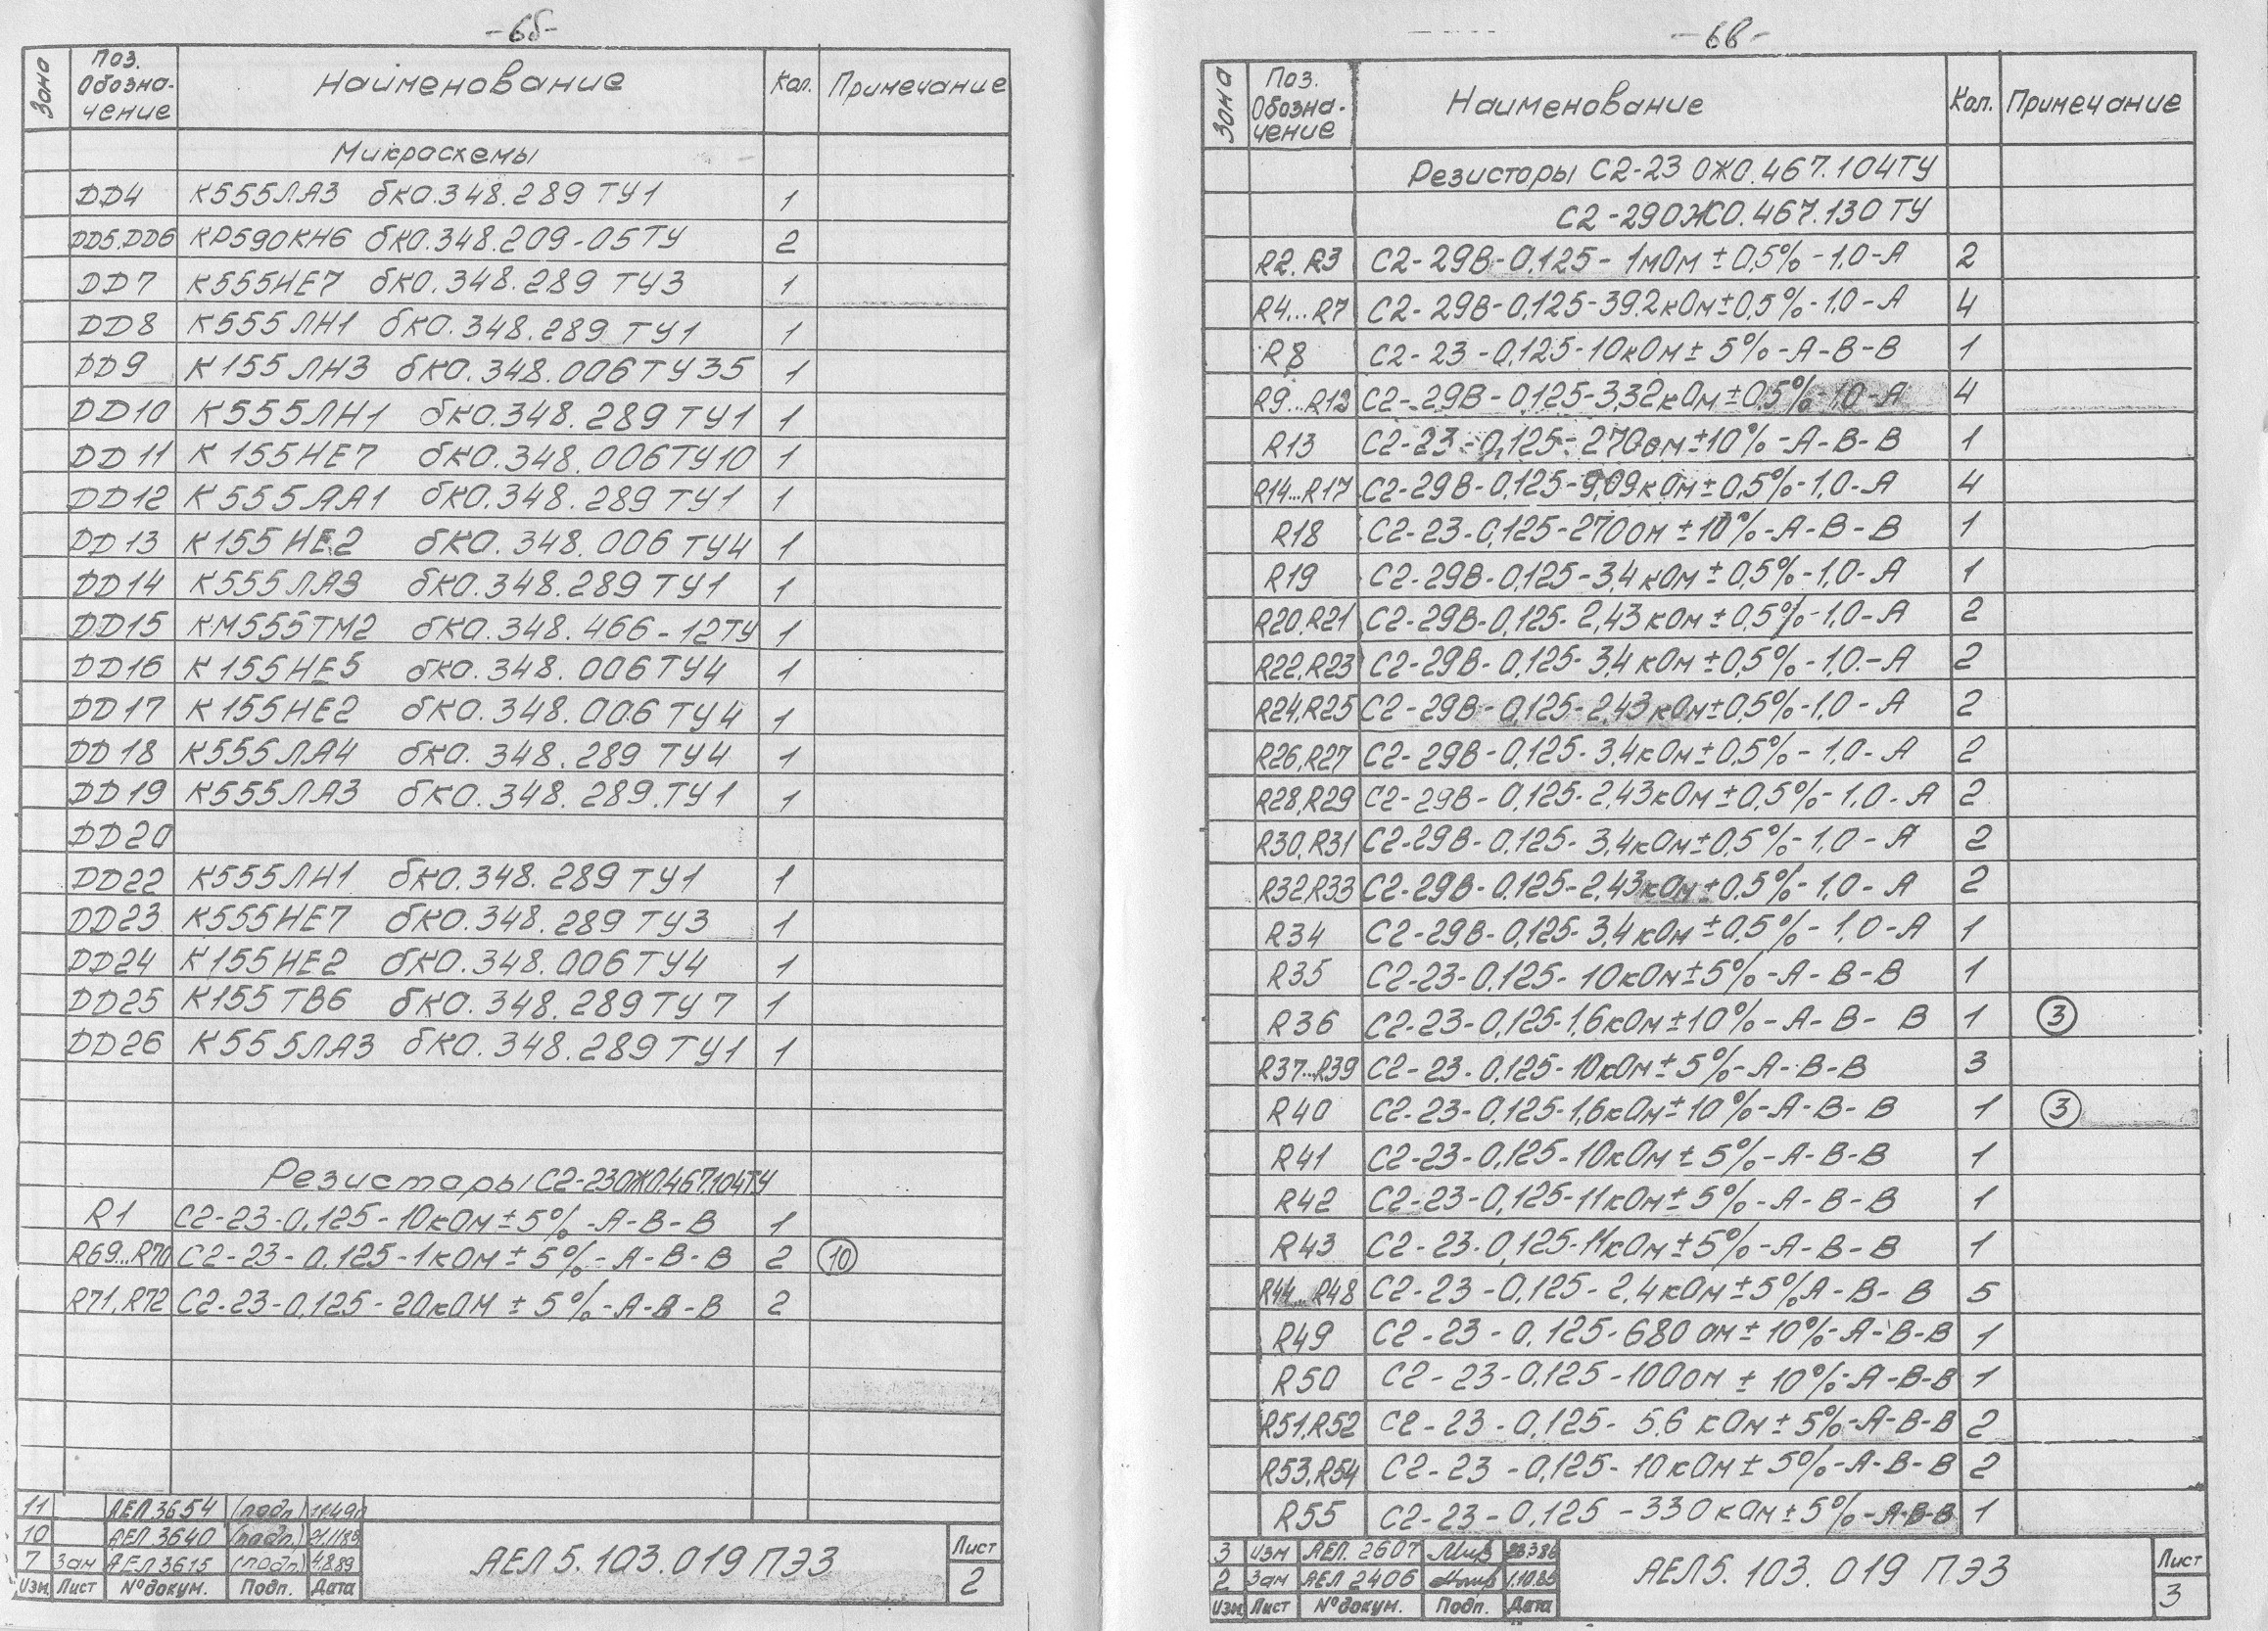 -6б-
Зона Поз. Обозна-чение Наименование Кол. Примечание
Микросхемы
DD4 К555ЛА3 бК0.348.289 ТУ1 1
DD5.DD6 КР590КН6 бК0.348.209-05ТУ 2
DD7 К555ИЕ7 бК0.348.289 ТУ3 1
DD8 К555ЛН1 бК0.348.289 ТУ1 1
DD9 К155ЛН3 бК0.348.006ТУ35 1
DD10 К555ЛН1 бК0.348.289 ТУ1 1
DD11 К155ИЕ7 бК0.348.006ТУ10 1
DD12 К555ЛА1 бК0.348.289 ТУ1 1
DD13 К155ИЕ2 бК0.348.006 ТУ4 1
DD14 К555ЛА3 бК0.348.289 ТУ1 1
DD15 КМ555ТМ2 бК0.348.466-12ТУ 1
DD16 К155ИЕ5 бК0.348.006ТУ4 1
DD17 К155ИЕ2 бК0.348.006 ТУ4 1
DD18 К555ЛА4 бК0.348.289 ТУ4 1
DD19 К555ЛА3 бК0.348.289.ТУ1 1
DD20
DD22 К555ЛН1 бК0.348.289 ТУ1 1
DD23 К555ИЕ7 бК0.348.289 ТУ3 1
DD24 К155ИЕ2 бК0.348.006ТУ4 1
DD25 К155ТВ6 бК0.348.289ТУ7 1
DD26 К555ЛА3 бК0.348.289ТУ1 1
Резисторы С2-23ОЖ0.467.104ТУ
R1 С2-23-0,125-10кОм±5%-А-В-В 1
R69...R70 С2-23-0,125-1кОм±5%-А-В-В 2 10
R71,R72 С2-23-0,125-20кОм±5%-А-В-В 2
11 АЕЛ 3654 (подп)
10 АЕЛ 3640 (подп.)
7 Зам АЕЛ3615 (подп) 4.8.89
Изм. Лист №докум. Подп. Дата
АЕЛ5.103.019 ПЭ3
Лист
2
-6в-
Зона Поз. Обозна-чение Наименование Кол. Примечание
Резисторы С2-23 ОЖ0.467.104ТУ
С2-29ОЖ0.467.130ТУ
R2,R3 С2-29В-0,125-1мОм±0,5%-1,0-А 2
R4...R7 С2-29В-0,125-39.2кОм±0,5%-1,0-А 4
R8 С2-23-0,125-10кОм±5%-А-В-В 1
R9...R12 С2-29В-0,125-3,32кОм±0,5%-1,0-А 4
R13 С2-23-0,125-270ом±10%-А-В-В 1
R14...R17 С2-29В-0,125-9,09кОм±0,5%-1,0-А 4
R18 С2-23-0,125-270ом±10%-А-В-В 1
R19 С2-29В-0,125-3,4кОм±0,5%-1,0-А 1
R20,R21 С2-29В-0,125-2,43кОм±0,5%-1,0-А 2
R22,R23 С2-29В-0,125-3,4кОм±0,5%-1,0-А 2
R24,R25 С2-29В-0,125-2,43кОм±0,5%-1,0-А 2
R26,R27 С2-29В-0,125-3,4кОм±0,5%-1,0-А 2
R28,R29 С2-29В-0,125-2,43кОм±0,5%-1,0-А 2
R30,R31 С2-29В-0,125-3,4кОм±0,5%-1,0-А 2
R32,R33 С2-29В-0,125-2,43кОм±0,5%-1,0-А 2
R34 С2-29В-0,125-3,4кОм±0,5%-1,0-А 1
R35 С2-23-0,125-10кОм±5%-А-В-В 1
R36 С2-23-0,125-1,6кОм±10%-А-В-В 1 3
R37...R39 С2-23-0,125-10кОм±5%-А-В-В 3
R40 С2-23-0,125-1,6кОм±10%-А-В-В 1 3
R41 С2-23-0,125-10кОм±5%-А-В-В 1
R42 С2-23-0,125-11кОм±5%-А-В-В 1
R43 С2-23-0,125-11кОм±5%-А-В-В 1
R44...R48 С2-23-0,125-2,4кОм±5%А-В-В 5
R49 С2-23-0,125-680 ом±10%-А-В-В 1
R50 С2-23-0,125-100ом±10%-А-В-В 1
R51,R52 С2-23-0,125-5.6 кОм±5%-А-В-В 2
R53,R54 С2-23-0,125-10кОм±5%-А-В-В 2
R55 С2-23-0,125-330кОм±5%-А-В-В 1
3 изм АЕЛ. 2607
2 Зам АЕЛ 2406
Изм Лист №докум. Подп. Дата
АЕЛ5.103.019 ПЭ3
Лист
3